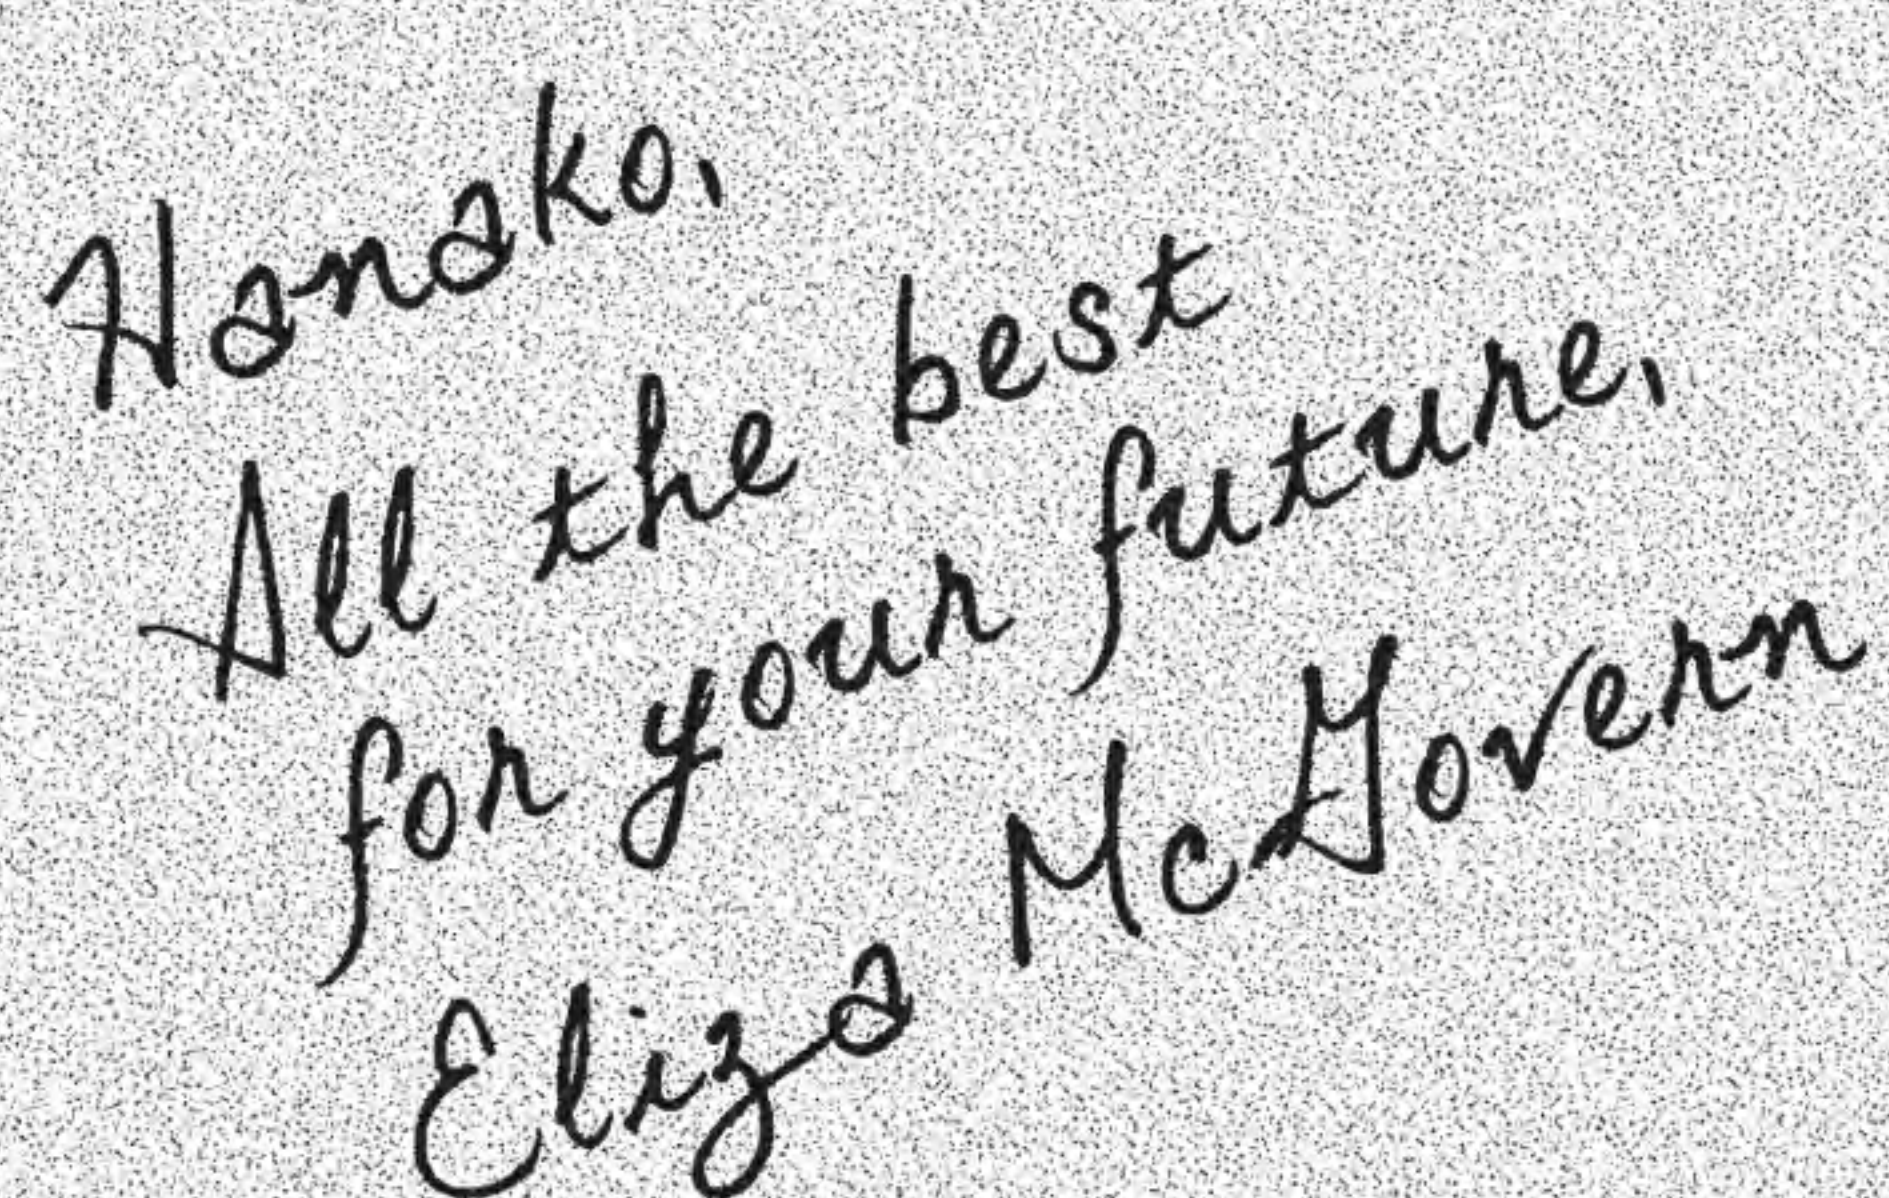 Hanako,
All the best
for your future,
Eliza McGovern